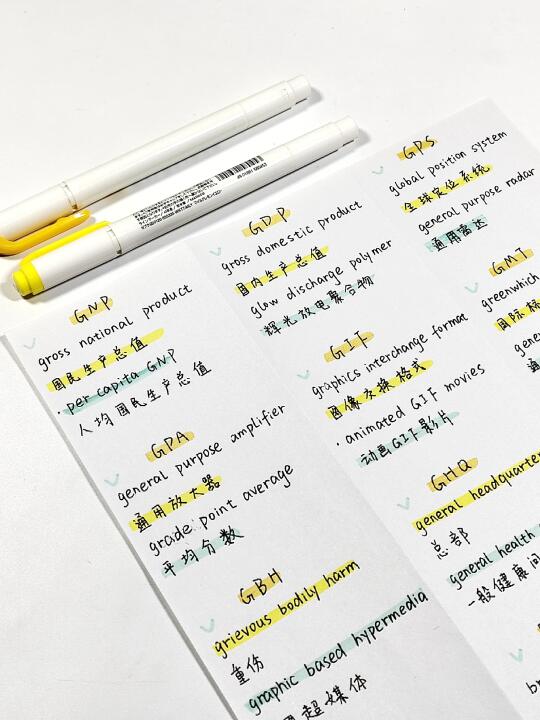 GNP
gross national product
国民生产总值
· per capita GNP
人均国民生产总值
GPA
general purpose amplifier
通用放大器
grade point average
平均分数
GBH
grievous bodily harm
重伤
graphic based hypermedia
超媒体
GDP
gross domestic product
国内生产总值
glow discharge polymer
辉光放电聚合物
GIF
graphics interchange format
图像交换格式
· animated GIF movies
动画GIF影片
GHQ
general headquarter
总部
general health
一般健康问
GPS
global position system
全球定位系统
general purpose radar
通用雷达
GMT
greenwhich
国际标
gene
通
br